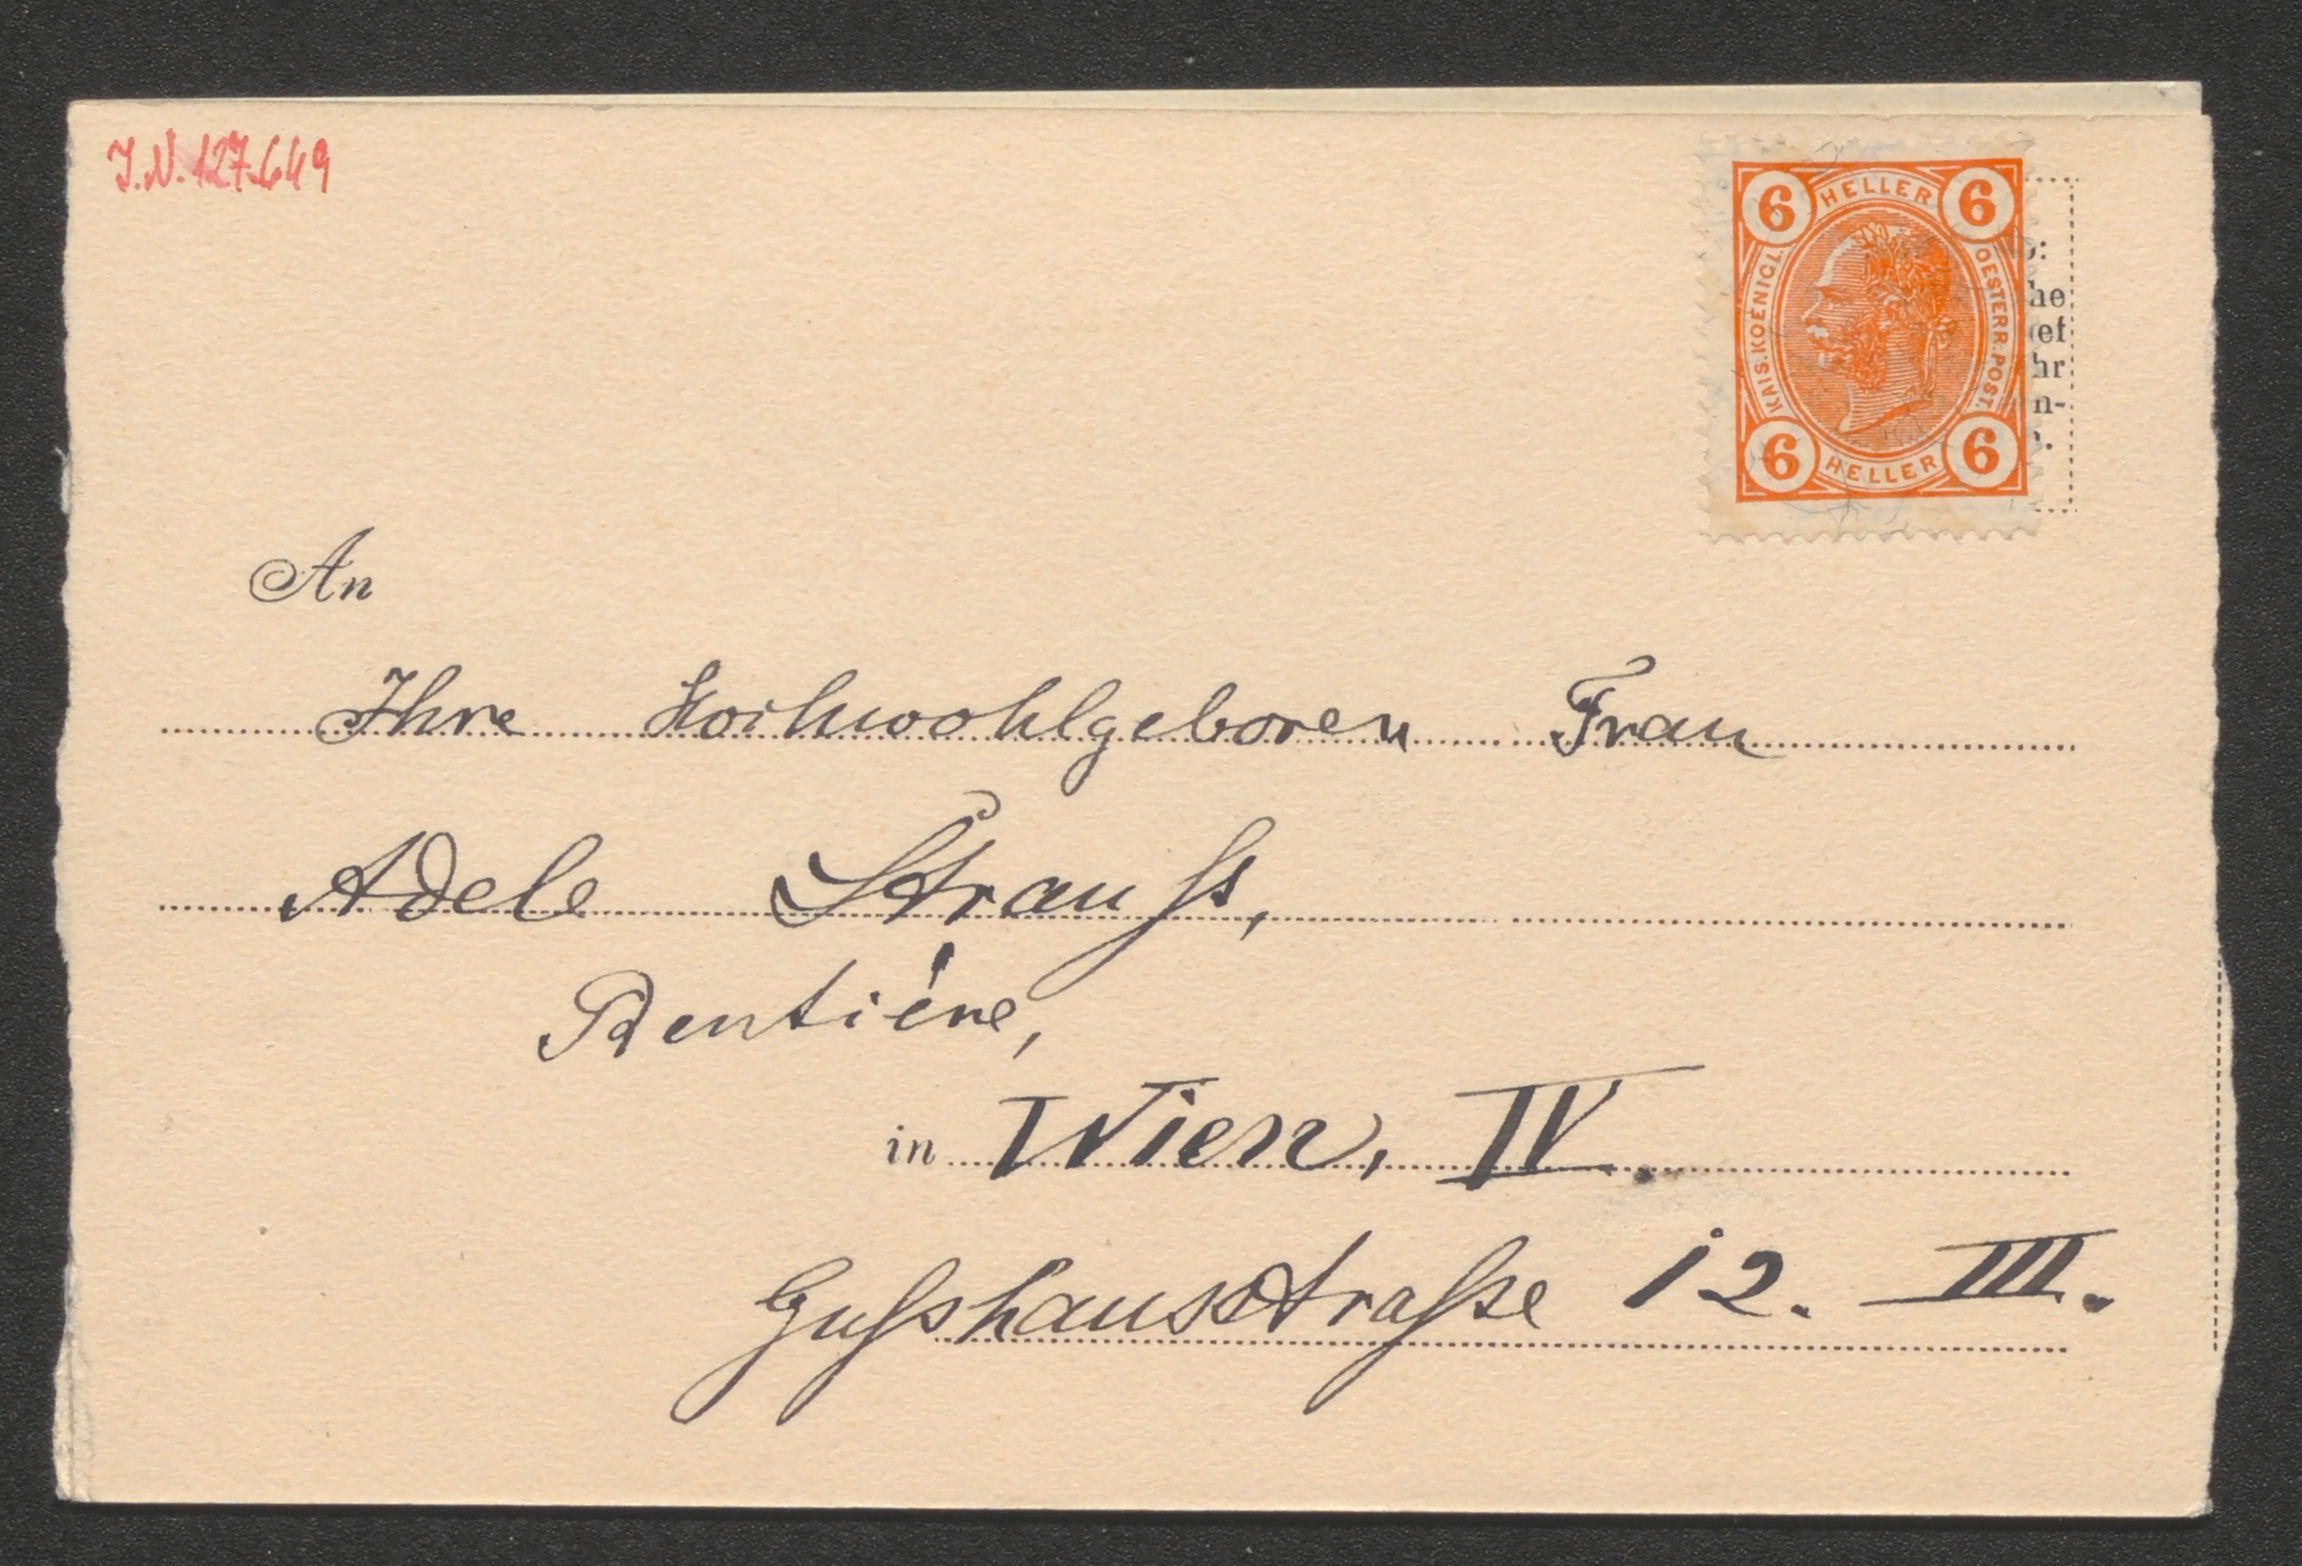 J.N. 127.649
6 HELLER 6
KAIS. KOENIGL.
OESTERR. POST.
6 HELLER 6
:
he
ef
hr
n-
.
An
Ihre Hochwohlgeboren Frau
Adele Strauſs,
Rentiére,
in Wien, IV.
Guſshausstraſse 12. III.